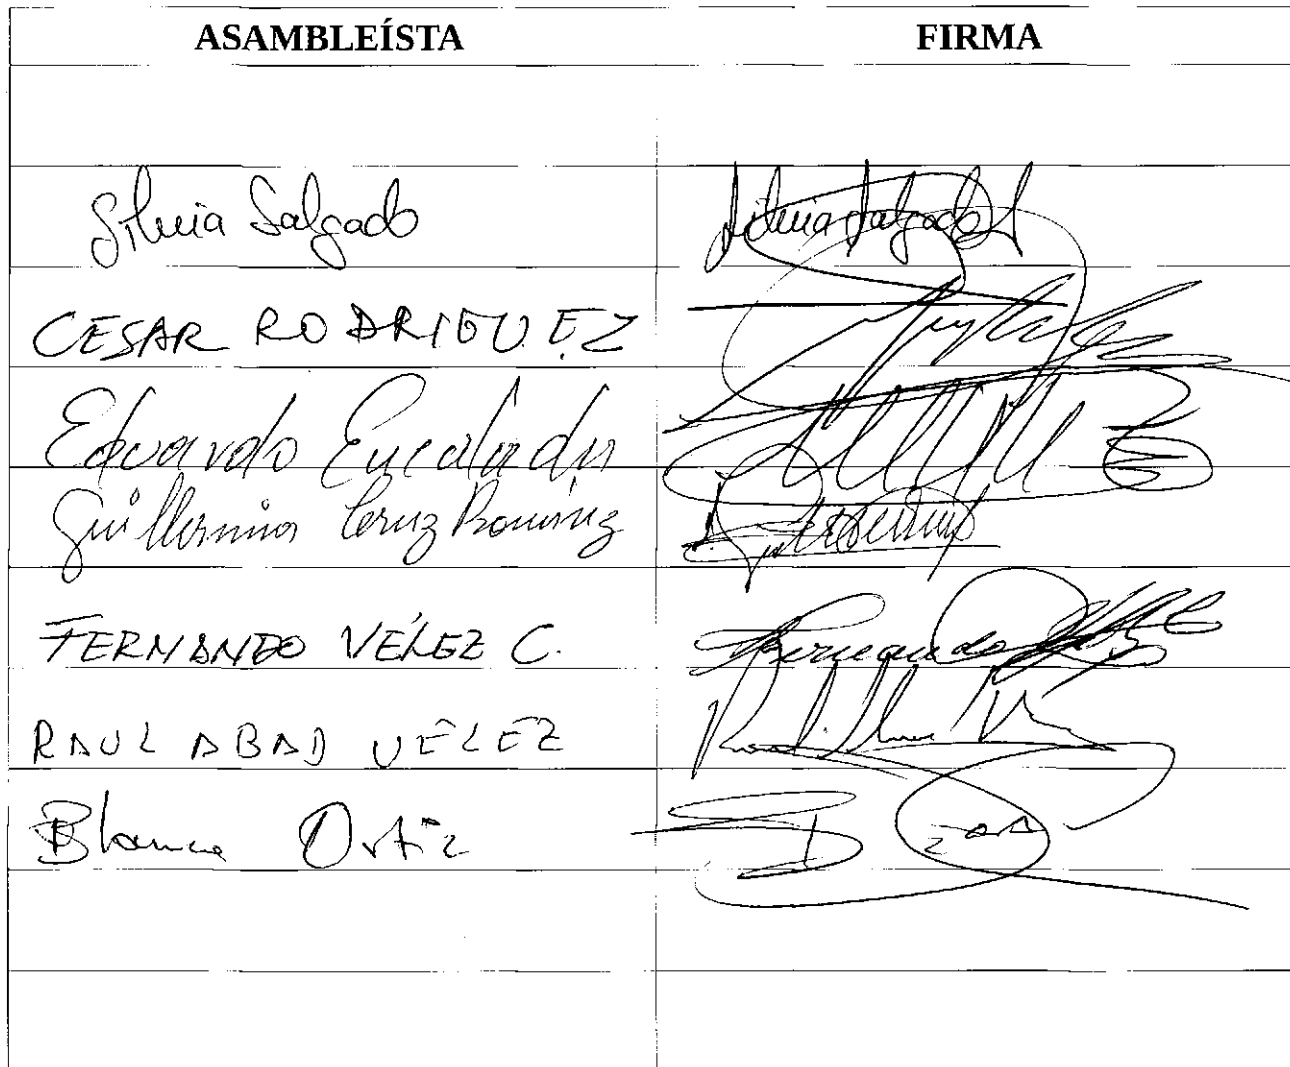 ASAMBLEÍSTA FIRMA
Silvia Salgado Silvia Salgado
CESAR RODRIGUEZ
Eduardo Encalada
Guillermina Cruz Ramírez
FERNANDO VÉLEZ C. Fernando
RAUL ABAD VÉLEZ
Blanca Ortiz